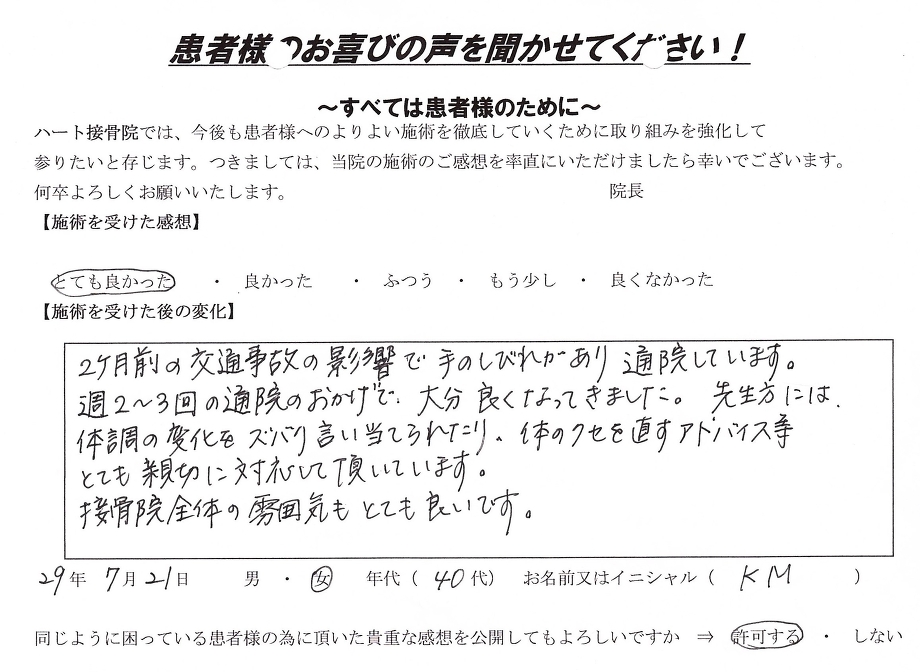 患者様のお喜びの声を聞かせてください！
～すべては患者様のために～
ハート接骨院では、今後も患者様へのよりよい施術を徹底していくために取り組みを強化して
参りたいと存じます。つきましては、当院の施術のご感想を率直にいただけましたら幸いでございます。
何卒よろしくお願いいたします。 院長
【施術を受けた感想】
とても良かった ・ 良かった ・ ふつう ・ もう少し ・ 良くなかった
【施術を受けた後の変化】
2ヶ月前の交通事故の影響で手のしびれがあり通院しています。
週2～3回の通院のおかげで、大分良くなってきました。先生方には、
体調の変化をズバリ言い当てられたり、体のクセを直すアドバイス等
とても親切に対応して頂いています。
接骨院全体の雰囲気もとても良いです。
29年 7月21日 男 ・ 女 年代（ 40代） お名前又はイニシャル（ KM ）
同じように困っている患者様の為に頂いた貴重な感想を公開してもよろしいですか ⇒ 許可する ・ しない